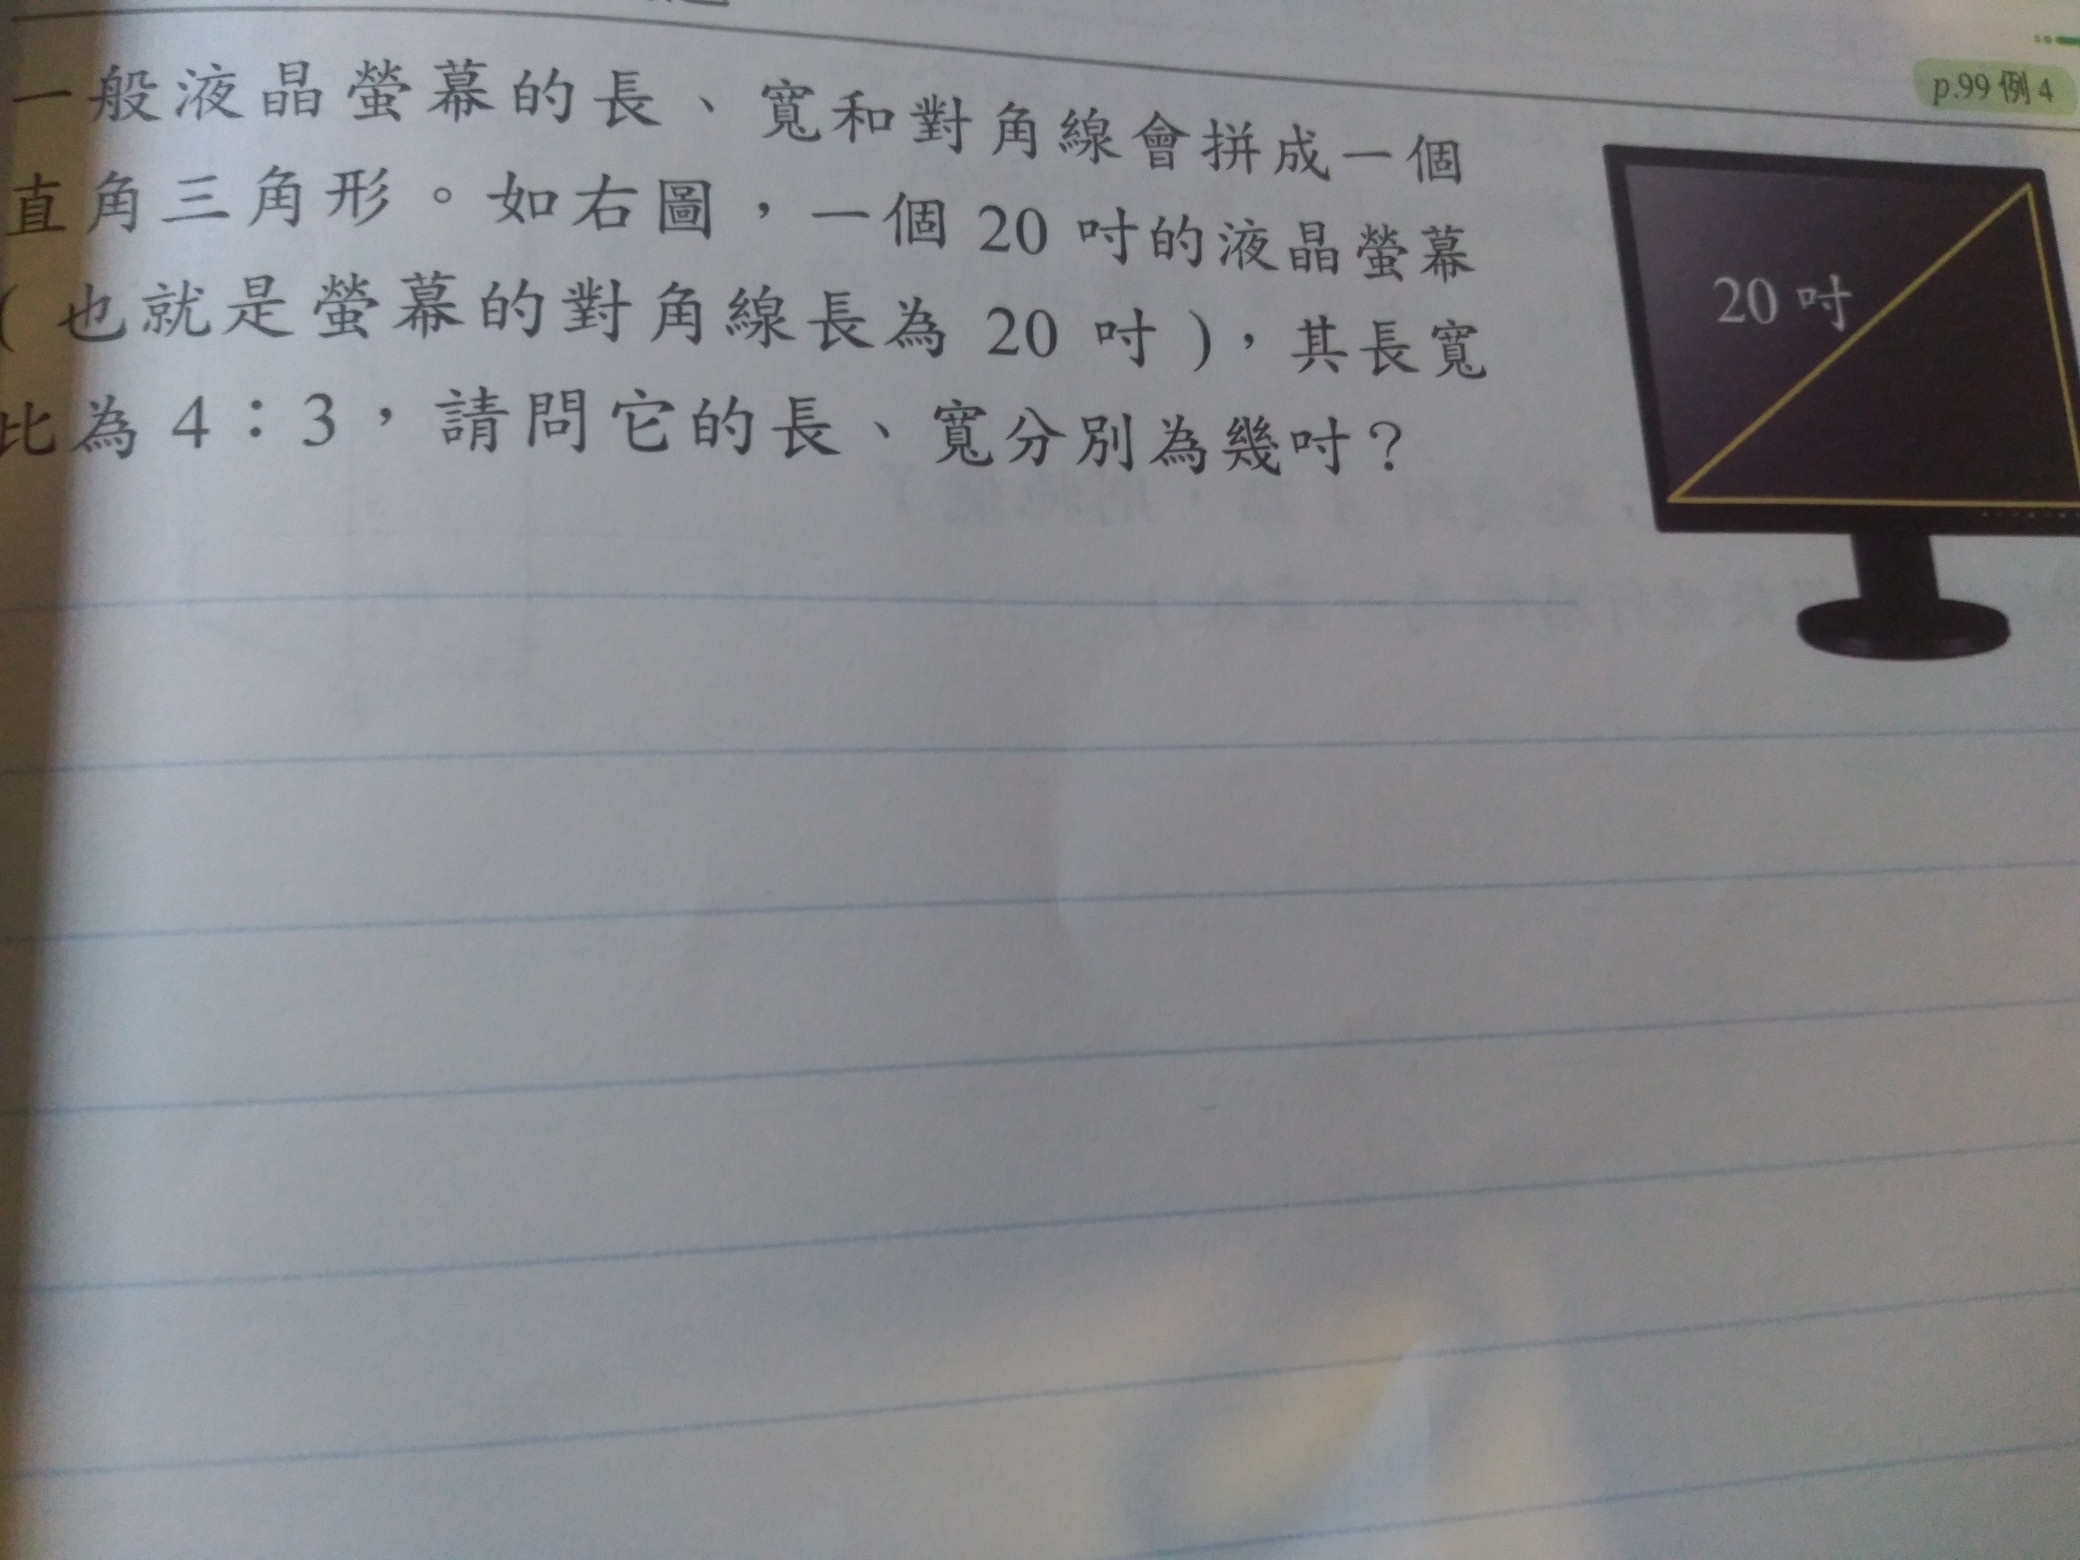 p.99 例 4
一般液晶螢幕的長、寬和對角線會拼成一個
直角三角形。如右圖，一個 20 吋的液晶螢幕
( 也就是螢幕的對角線長為 20 吋 )，其長寬
比為 4：3，請問它的長、寬分別為幾吋？
20 吋